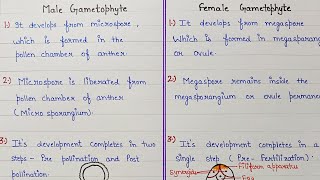 Male Gametophyte
1) It develops from microspore,
which is formed in the
pollen chamber of anther.
2:) Microspore is liberated from
pollen chamber of anther
(Microsporangium).
3:) It's development completes in two
steps - Pre pollination and Post
pollination.
Female Gametophyte
1) It develops from megaspore
Which is formed in megasporang
or ovule.
2:) Megaspore remains inside the
megasporangium or ovule permane
3:) It's development completes in a
single step (Pre-Fertilization).
Synergids
Filiform apparatus
Egg